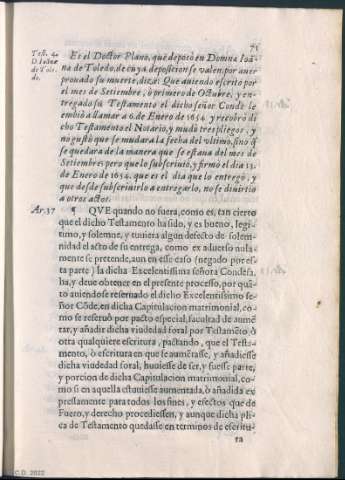 75
Test. 4.
D. Ioāna
de Tole-
do.
Es el Doctor Plano, que depotò en Domna Ioā-
na de Toledo, de cuya deposicion se valen por aver
prouado su muerte, dize: Que auiendo escrito por
el mes de Setiembre, ò primero de Octubre, y en-
tregado sù Testamento el dicho señor Conde le
embiò a llamar a 6. de Enero de 1654. y recobrò di
cho Testamento el Notario, y mudò tres pliegos, y
no gustò que se mudara la fecha del vltimo, sino q̄
se quedara de la manera que se estaua del mes de
Setiembre; pero que lo subscriuiò, y firmò el dia 11.
de Enero de 1654. que es el dia que lo entregò, y
que desde subscriuirlo a entregarlo, no se diuirtio
a otros actos.
Ar. 37 ¶ QVE quando no fuera, como es, tan cierto
que el dicho Testamento ha sido, y es bueno, legi-
timo, y solemne, y tuuiera algun defecto de solem-
nidad el acto de su entrega, como ex aduerso nula-
mente se pretende, aun en esse caso (negado por es-
ta parte) la dicha Excelentissima señora Condesa,
ha, y deue obtener en el presente processo, por quā-
to auiendose reseruado el dicho Excelentissimo se-
ñor Cōde, en dicha Capitulacion matrimonial, co-
mo se reseruò por pacto especial, facultad de aumē-
tar, y añadir dicha viudedad foral por Testamēto, ò
otra qualquiere escritura, pactando, que el Testa-
mento, ò escritura en que le aumētasse, y añadiesse
dicha viudedad foral, huuiesse de ser, y fuesse parte,
y porcion de dicha Capitulacion matrimonial, co-
mo si en aquella estuuiesse aumentada, ò añadida ex
pressamente para todos los fines, y efectos que de
Fuero, y derecho procediessen, y aunque dicha pli-
ca de Testamento quedasse en terminos de escritu-
ra
C.D. 2022